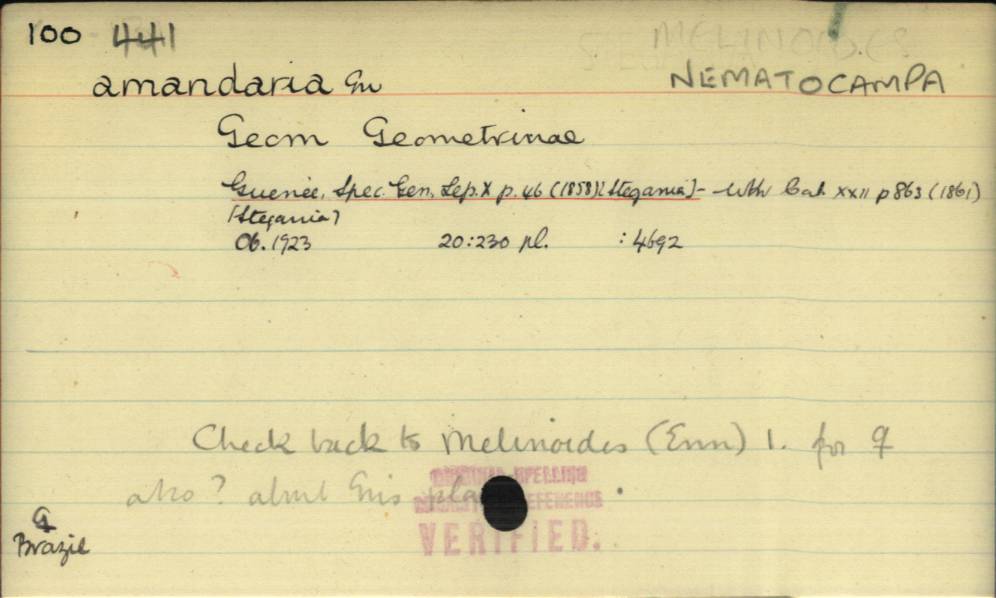 100 441
MELINOIDES
amandaria Gn
NEMATOCAMPA
Geom Geometrinae
Guenée, Spec. Gen. Lep. X p. 46 (1858) [Stegania] - Wlk Cat. XXII p 863 (1861)
[Stegania]
Ob. 1923 20:230 pl. : 4692
Check back to Melinoides (Enn) 1. for ♀
also? about this
SPELLING
REFERENCE
VERIFIED.
Brazil